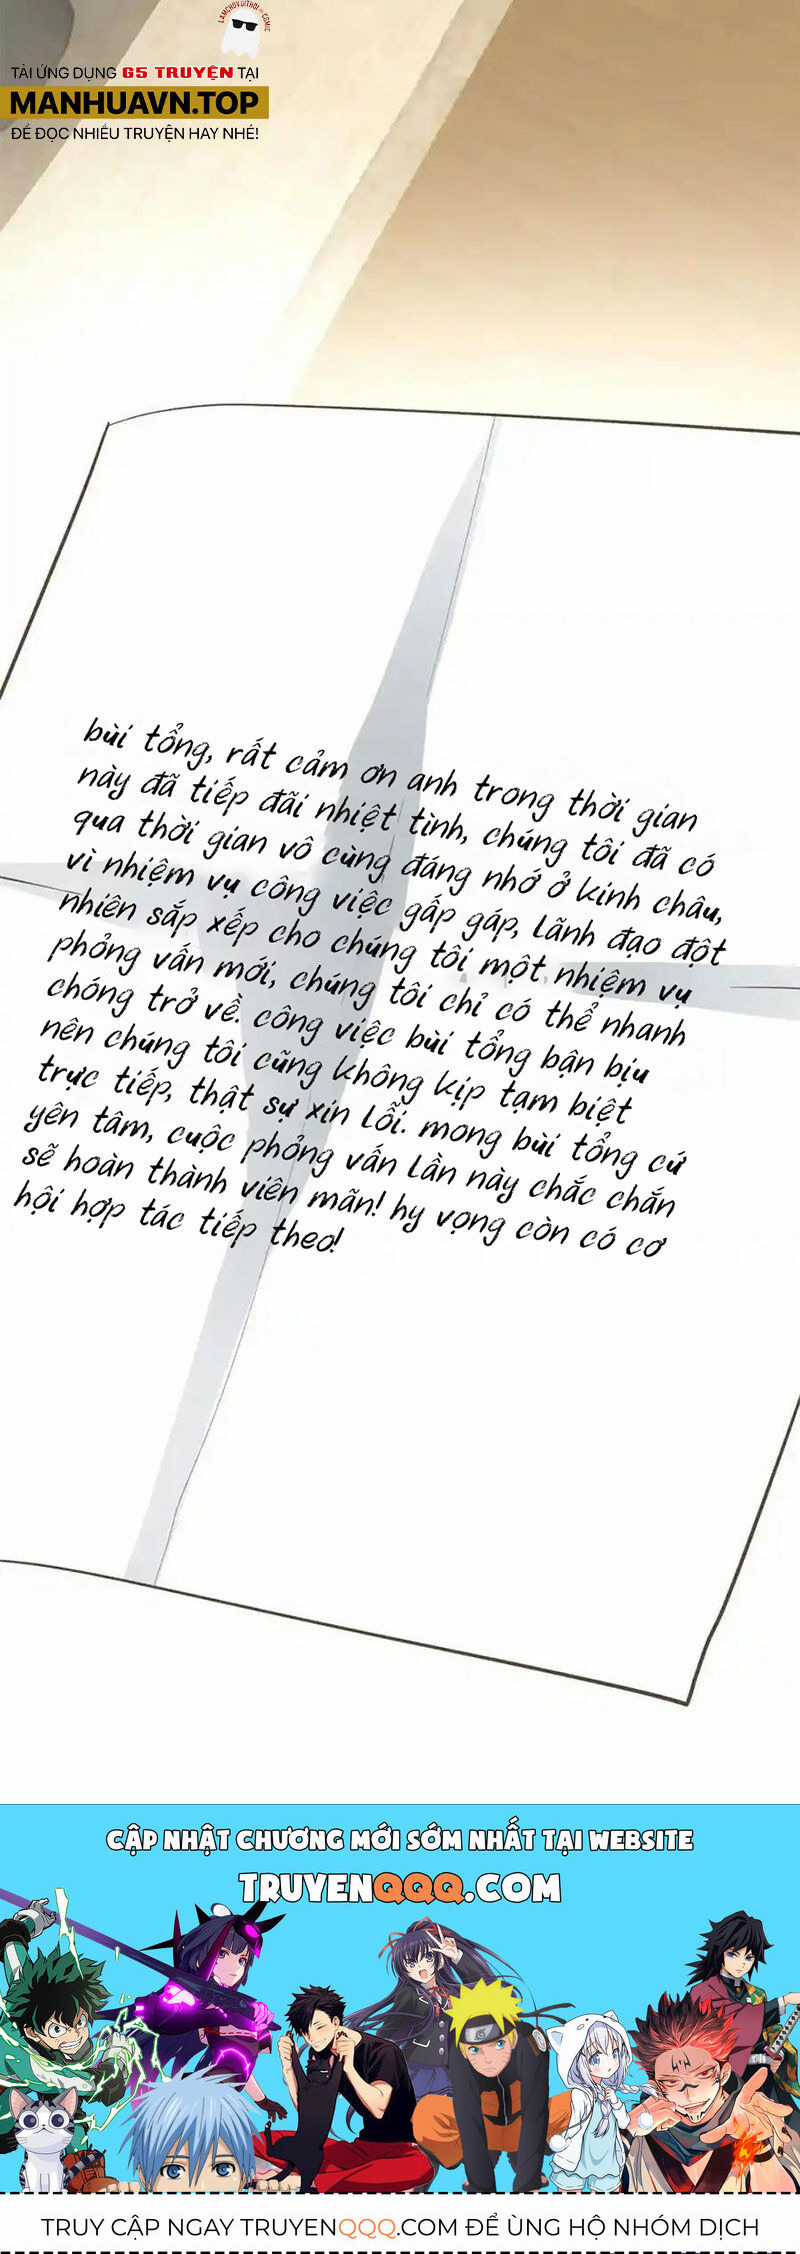 LAMCHOVUITHOI.COMIC
TẢI ỨNG DỤNG G5 TRUYỆN TẠI
MANHUAVN.TOP
ĐỂ ĐỌC NHIỀU TRUYỆN HAY NHÉ!
bùi tổng, rất cảm ơn anh trong thời gian
này đã tiếp đãi nhiệt tình, chúng tôi đã có
qua thời gian vô cùng đáng nhớ ở kinh châu,
vì nhiệm vụ công việc gấp gáp, lãnh đạo đột
nhiên sắp xếp cho chúng tôi một nhiệm vụ
phỏng vấn mới, chúng tôi chỉ có thể nhanh
chóng trở về. công việc bùi tổng bận bịu
nên chúng tôi cũng không kịp tạm biệt
trực tiếp, thật sự xin lỗi. mong bùi tổng cứ
yên tâm, cuộc phỏng vấn lần này chắc chắn
sẽ hoàn thành viên mãn! hy vọng còn có cơ
hội hợp tác tiếp theo!
CẬP NHẬT CHƯƠNG MỚI SỚM NHẤT TẠI WEBSITE
TRUYENQQQ.COM
TRUY CẬP NGAY TRUYENQQQ.COM ĐỂ ỦNG HỘ NHÓM DỊCH